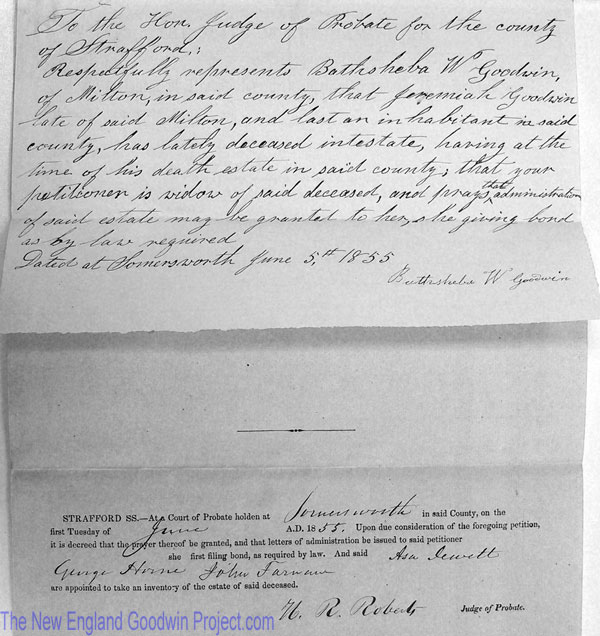 To the Hon. Judge of Probate for the county
of Strafford,:
Respectfully represents Bathsheba W Goodwin,
of Milton, in said county, that Jeremiah Goodwin
late of said Milton, and last an inhabitant in said
county, has lately deceased intestate, having at the
time of his death estate in said county; that your
petitioner is widow of said deceased, and prays that administration
of said estate may be granted to her, she giving bond
as by law required
Dated at Somersworth June 5,th 1855
Bathsheba W Goodwin
STRAFFORD SS.—At a Court of Probate holden at Somersworth in said County, on the
first Tuesday of June A.D. 1855. Upon due consideration of the foregoing petition,
it is decreed that the prayer thereof be granted, and that letters of administration be issued to said petitioner
she first filing bond, as required by law. And said Asa Jewett
George Horne John Farnam
are appointed to take an inventory of the estate of said deceased.
H. R. Roberts Judge of Probate.
The New England Goodwin Project.com